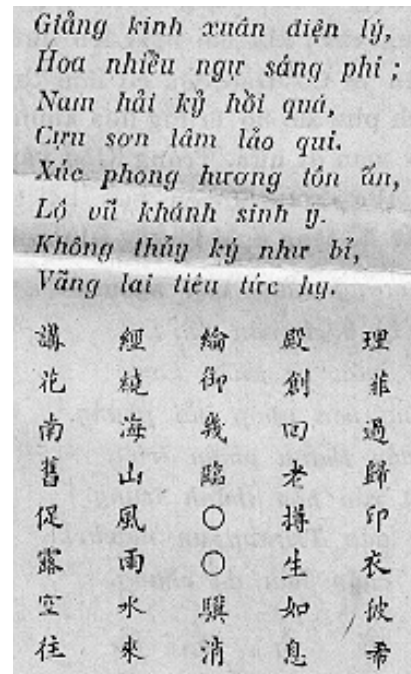 Giảng kinh xuân điện lý,
Hoa nhiễu ngự sáng phi ;
Nam hải kỷ hồi quá,
Cựu sơn lâm lảo qui.
Xúc phong hương tồn ấn,
Lộ vũ khánh sinh y.
Không thủy ký như bỉ,
Vãng lai tiêu tức hy.
講 經 綸 殿 理
花 繞 御 創 菲
南 海 幾 回 過
舊 山 臨 老 歸
促 風 〇 搏 印
露 雨 〇 生 衣
空 水 驥 如 彼
往 來 消 息 希